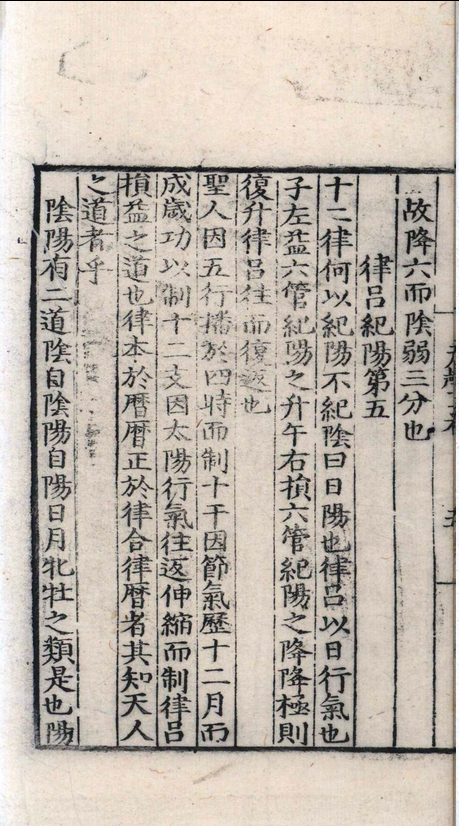 故降六而陰弱三分也
律呂紀陽第五
十二律何以紀陽不紀陰曰日陽也律呂以日行氣也
子左益六管紀陽之升午右損六管紀陽之降降極則
復升律呂往而復返也
聖人因五行播於四時而制十干因節氣歷十二月而
成歲功以制十二支因太陽行氣往返伸縮而制律呂
損益之道也律本於曆曆正於律合律曆者其知天人
之道者乎
陰陽有二道陰自陰陽自陽日月牝牡之類是也陽